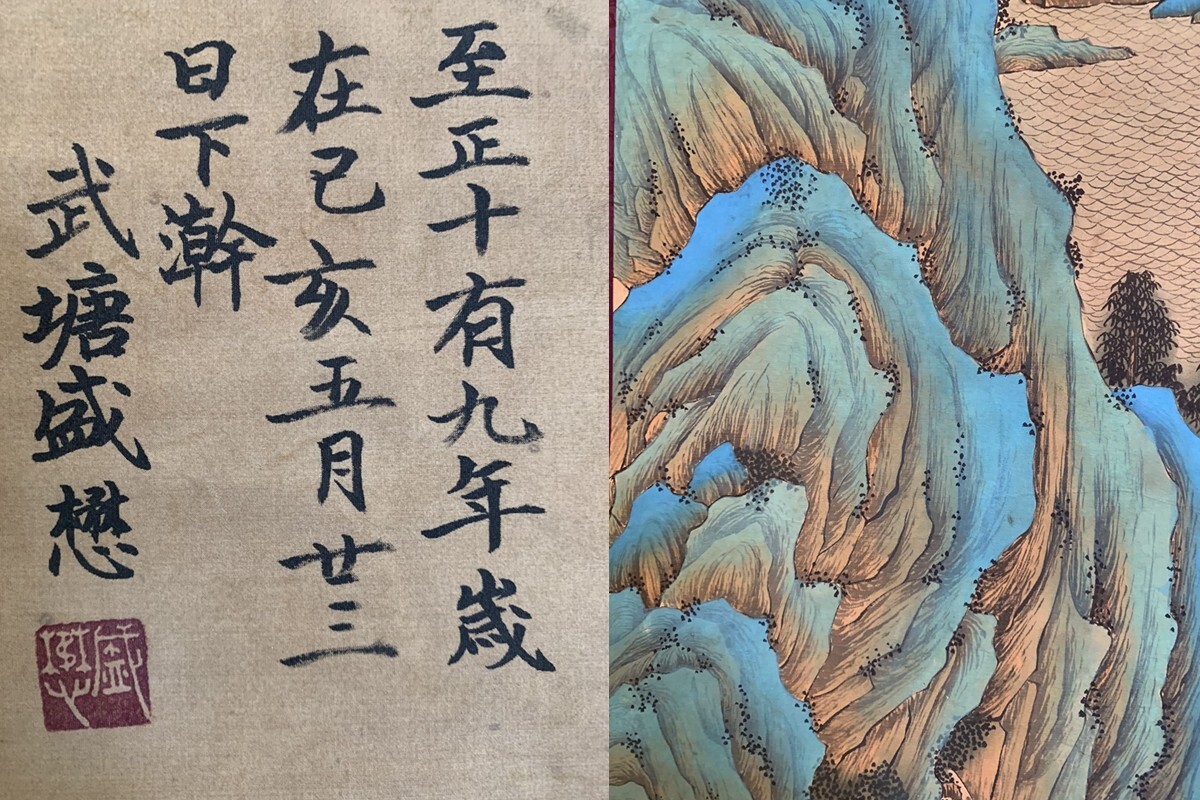 至正十有九年歲
在己亥五月廿三
日下澣
武塘盛懋
盛懋